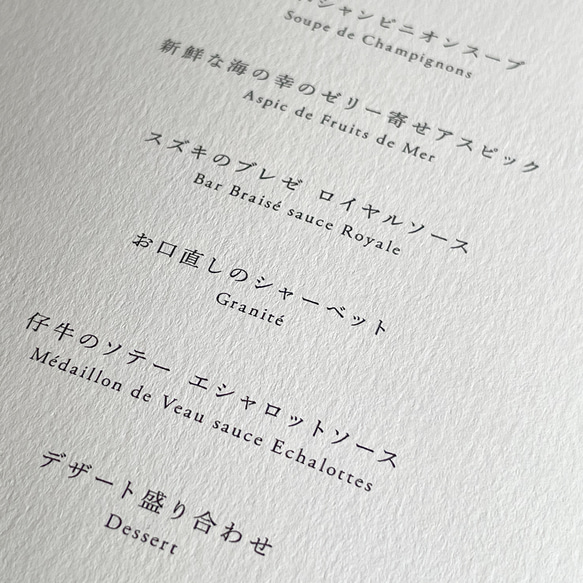 シャンピニオンスープ
Soupe de Champignons
新鮮な海の幸のゼリー寄せアスピック
Aspic de Fruits de Mer
スズキのブレゼ ロイヤルソース
Bar Braisé sauce Royale
お口直しのシャーベット
Granité
仔牛のソテー エシャロットソース
Médaillon de Veau sauce Echalottes
デザート盛り合わせ
Dessert